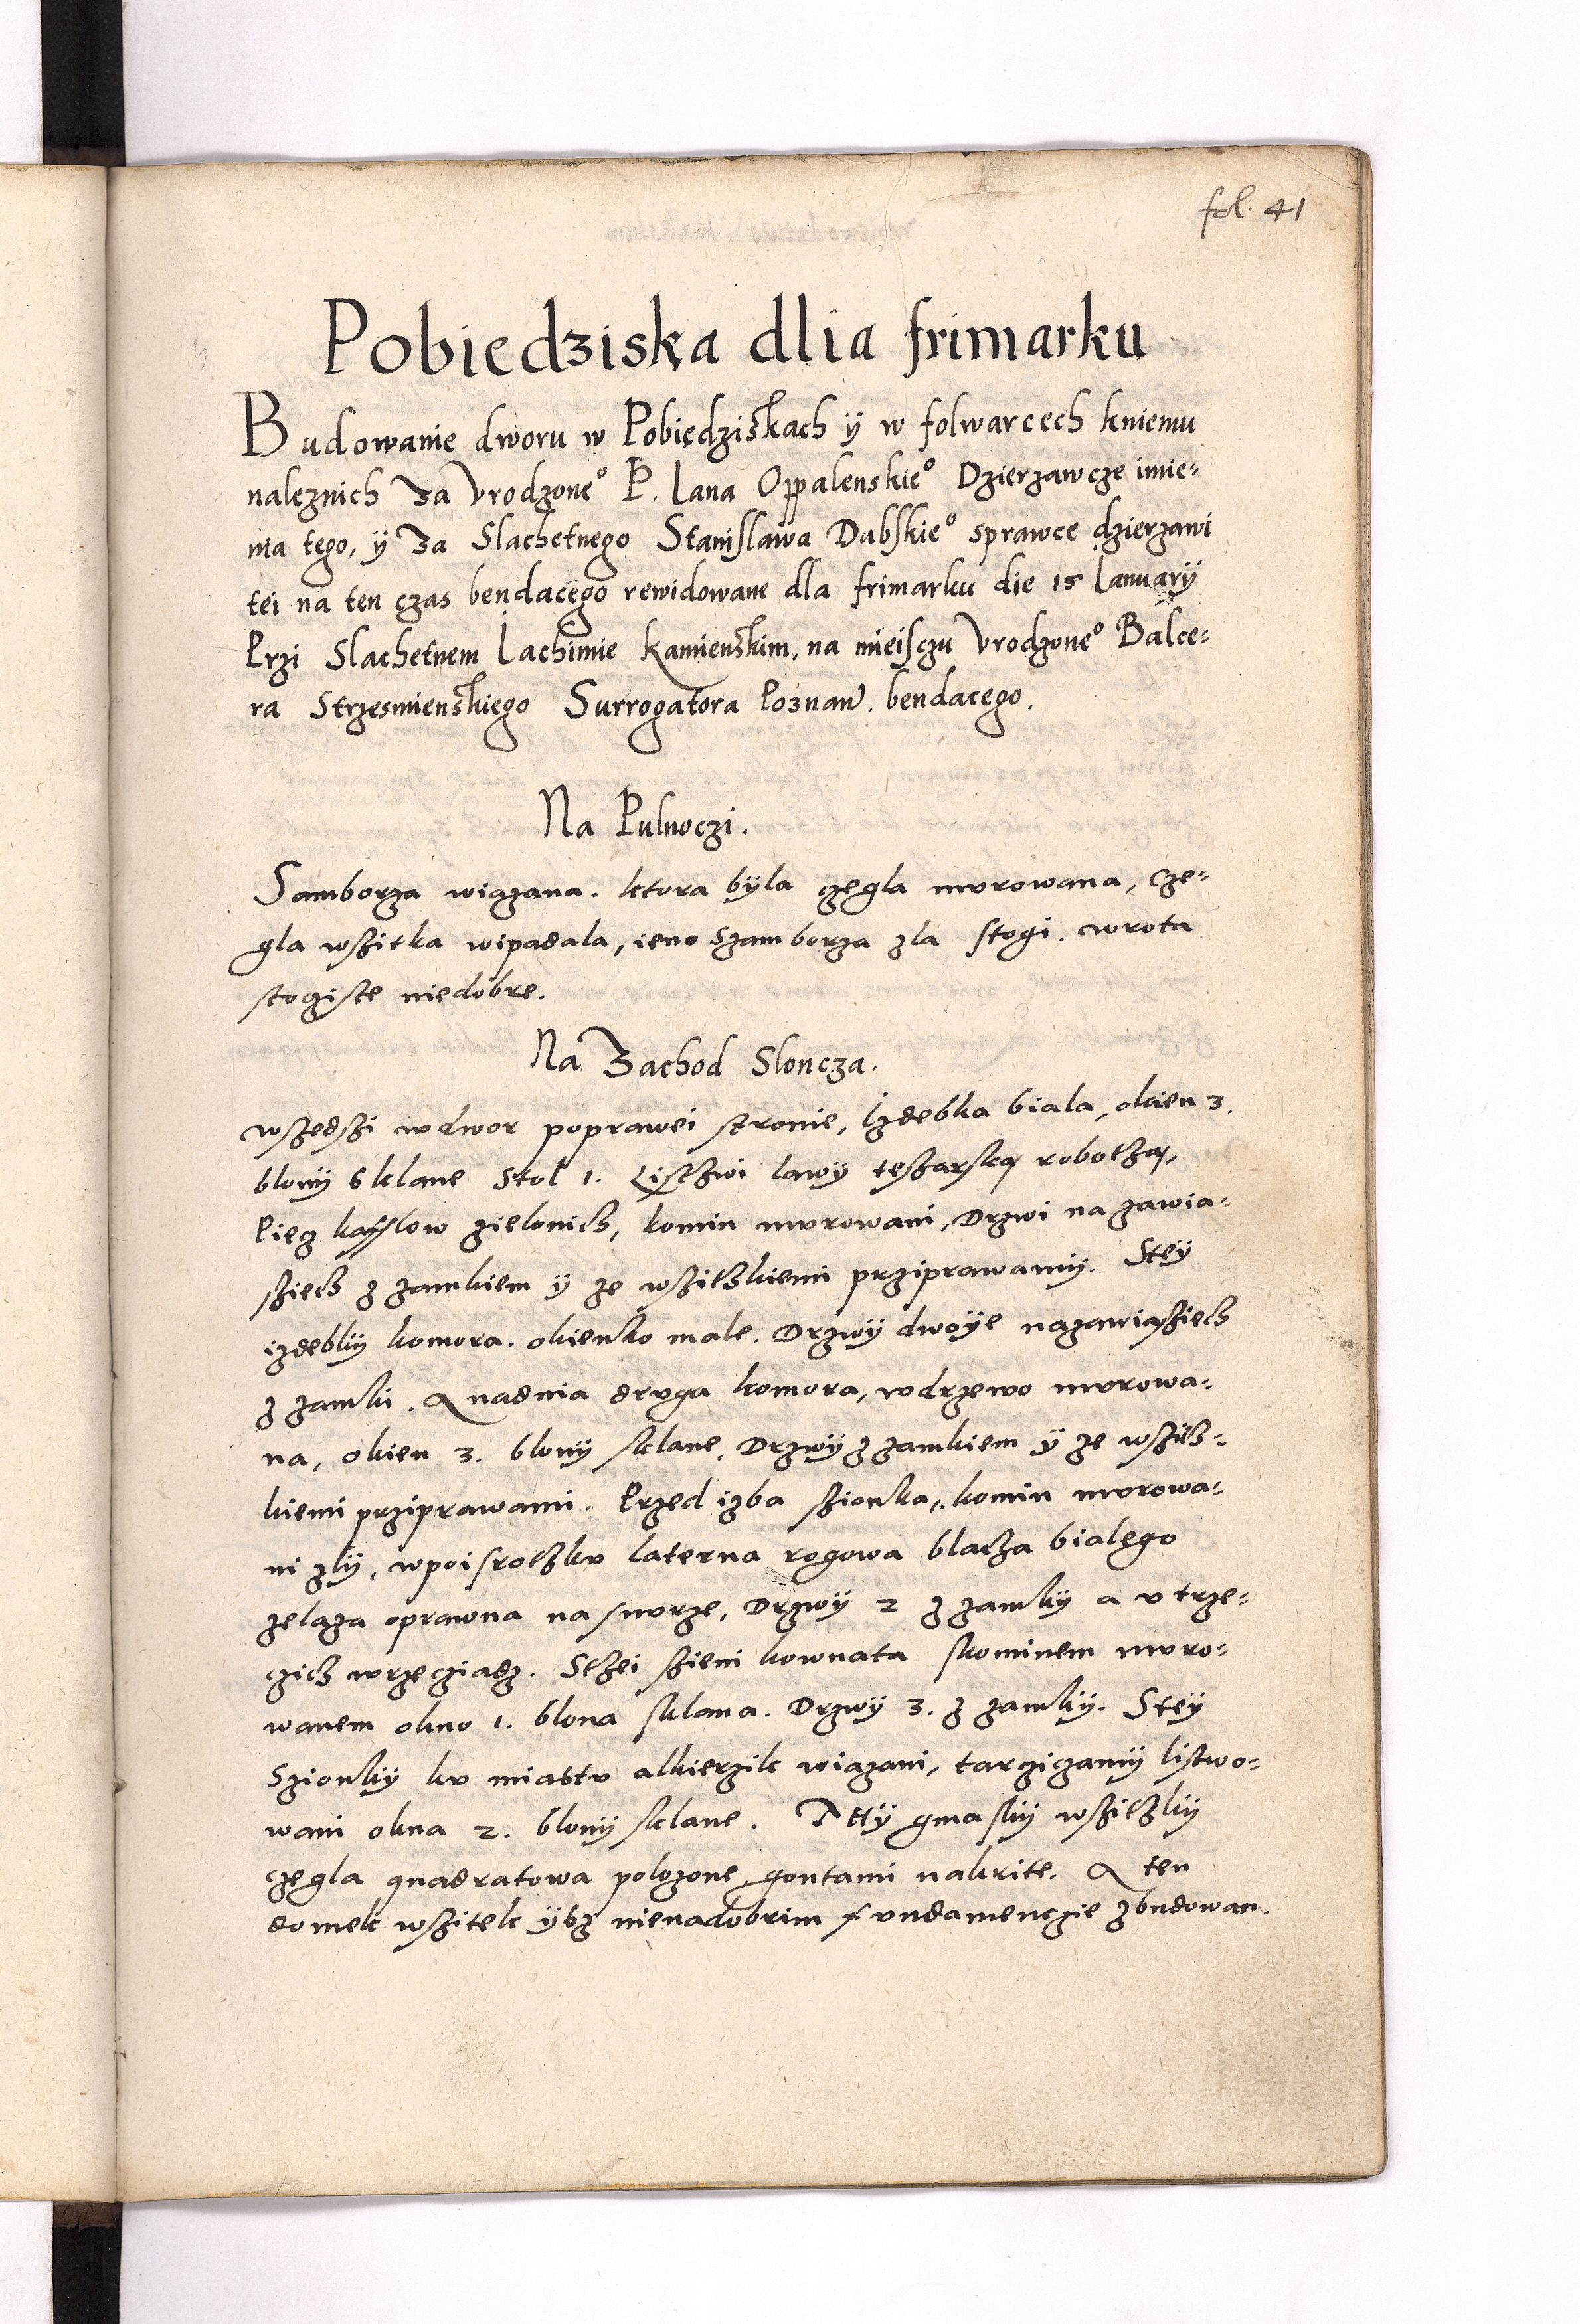 fol. 41
Pobiedziska dlia frimarku
Budowanie dworu w Pobiedziskach ÿ w folwarcech kniemu
naleznich Za Vrodzone° P. Iana Oppalenskie° Dzierzawcze imie-
nia tego, ÿ Za Slachetnego Stanislawa Dabskie° sprawce dzierzawi
tei na ten czas bendacego rewidowane dla frimarku die 15 Ianuarÿ
Przi Slachetnem Iachimie Kamienskim, na mieisczu Vrodzone° Balce-
ra Strzesmienskiego Surrogatora Poznan. bendacego.
Na Pulnoczi.
Samborza wiązana. ktora bÿla czegla mvrowana, cze-
gla wszitka wipadala, ieno Szamborza zla stogi. wrota
stogiste niedobre.
Na Zachod Sloncza.
wszedszi wdwor poprawei stronie, Izdebka biala, okien 3.
blonÿ sklane Stol 1. Listhwi lawÿ tesharską robothą,
Piecz kafflow zielonich, komin mvrowani, Drzwi na zawia-
sziech z zamkiem ÿ ze wszithkiemi prziprawamÿ. Steÿ
izdebkÿ komora. okienko male. Drzwÿ dwoÿe nazawiąsziech
z zamki. A nadnia drvga komora, wdrzewo mvrowa-
na, okien 3. blonÿ sklane, Drzwÿ z zamkiem ÿ ze wszith-
kiemi prziprawami. Przed izba szionka, komin mvrowa-
ni zlÿ, wpoisrothkv laterna rogowa blacha bialego
zelaza oprawna na snvrze, Drzwÿ 2 z zamkÿ a v trze-
czich wrzecziadz. Sthei szieni kownata skominem mvro-
wanem okno 1. blona sklana. Drzwÿ 3. z zamkÿ. Steÿ
Szionkÿ kv miastv alkierzik wiazani, tarcziczamÿ listwo-
wani okna 2. blonÿ sklane. A ttÿ gmaskÿ wszithkÿ
czegla quadratowa polozone gontami nakrite. A ten
domek wszitek ÿbz nienadobrim fvndamenczie zbudowan.